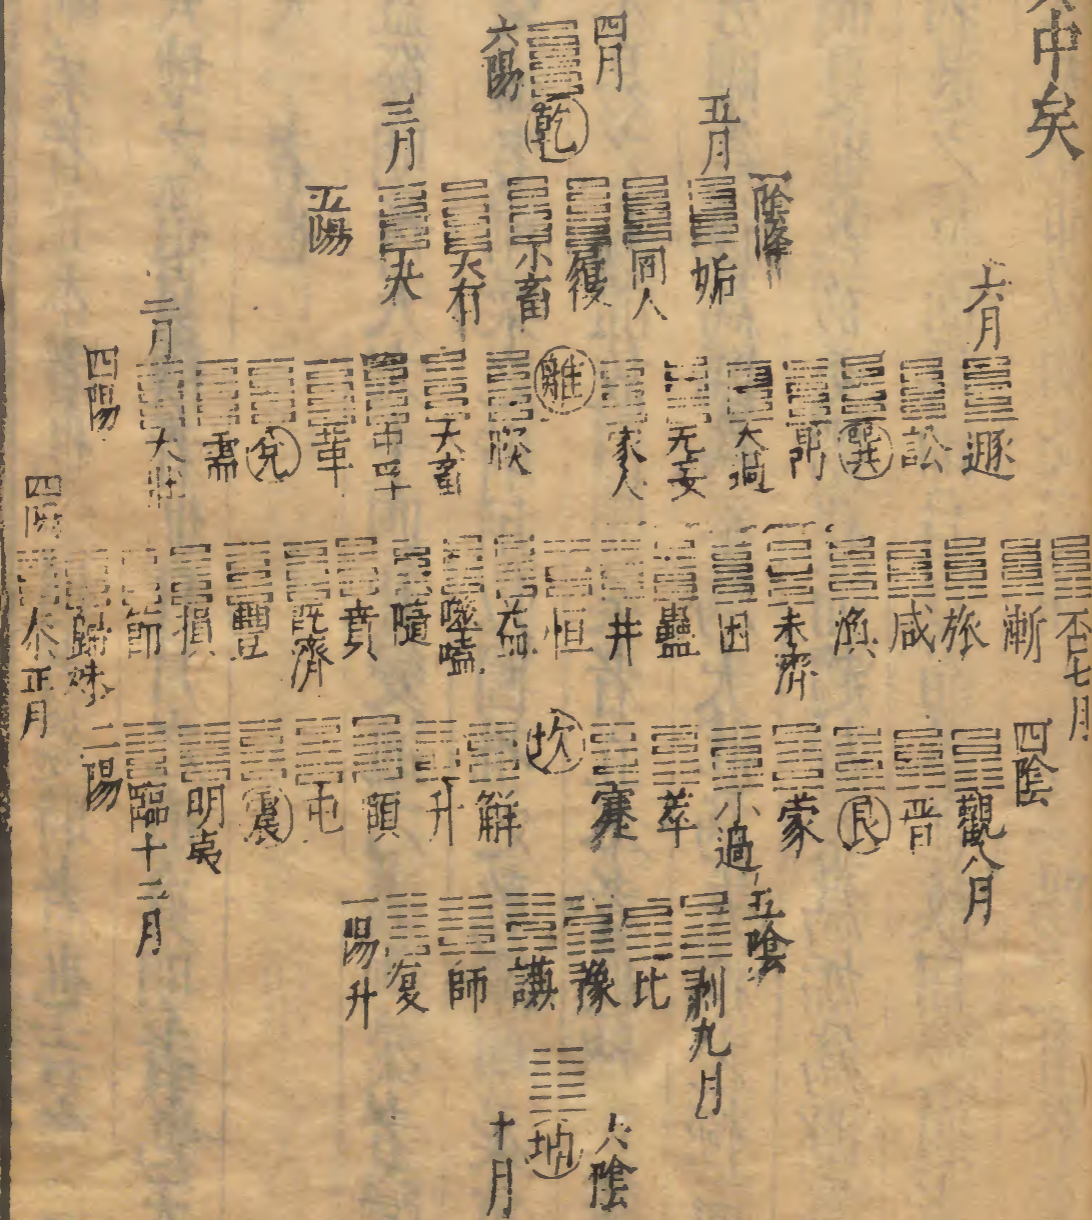 中矣
四月 乾 六陽
五月 三月
一陰降 姤 同人 復 小畜 大有 夬 五陽
六月 二月
遯 訟 巽 鼎 大過 无妄 家人 離 睽 大畜 中孚 革 兌 需 大壯 四陽
四陽
否七月 漸 旅 咸 渙 未濟 困 蠱 井 恒 益 噬嗑 隨 賁 既濟 豐 損 節 歸妹 泰正月
四陰 觀八月 晋 艮 蒙 小過 萃 蹇 坎 解 升 頤 屯 震 明夷 臨十二月 二陽
五陰 剥九月 比 豫 謙 師 復 一陽升
六陰 坤 十月